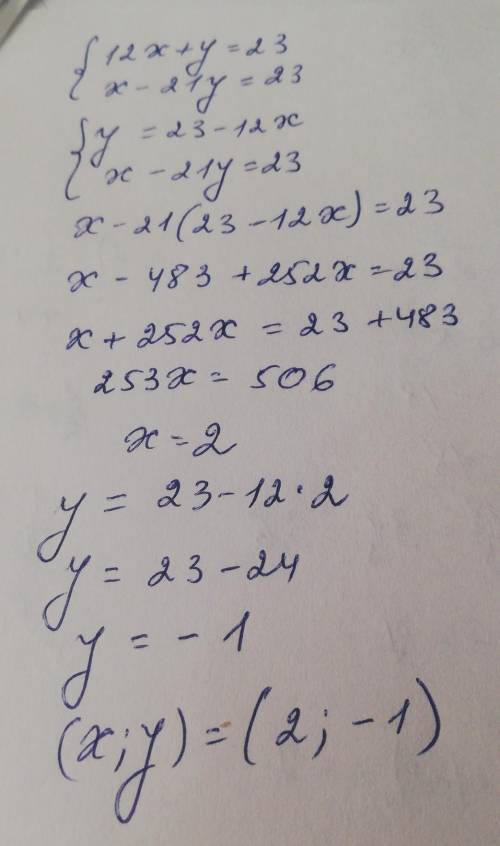 { 12x + y = 23
x - 21y = 23
{ y = 23 - 12x
x - 21y = 23
x - 21(23 - 12x) = 23
x - 483 + 252x = 23
x + 252x = 23 + 483
253x = 506
x = 2
y = 23 - 12 · 2
y = 23 - 24
y = - 1
(x; y) = (2; - 1)